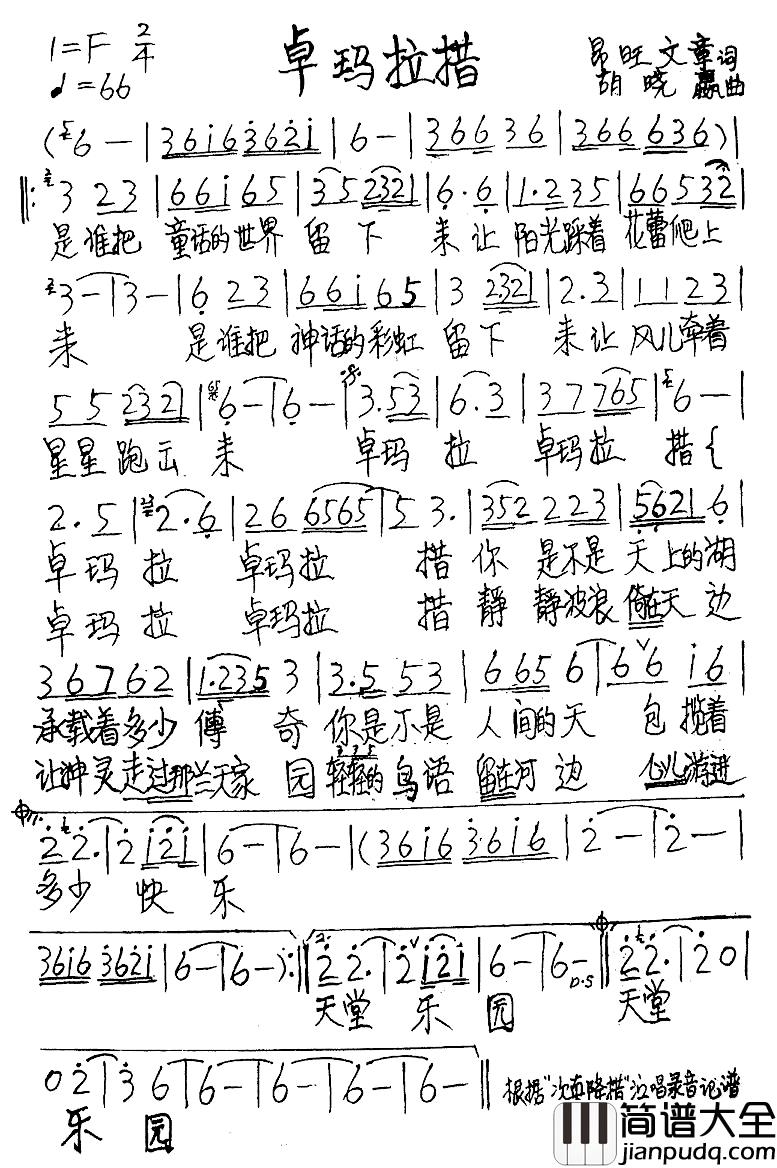 卓玛拉措
1=F 2/4
♩=66
昂旺文章词
胡晓 曲
(6 — | 3 6 i 6 3 6 2 i | 6 — | 3 6 6 3 6 | 3 6 6 6 3 6 ) |
‖: 3 2 3 | 6 6 i 6 5 | 3 5 2 3 2 1 | 6 · 6 | 1 · 2 3 5 | 6 6 5 3 2 |
是谁把 童话的世界 留下 来让 阳光踩着 花蕾爬上
3 — | 3 — | 6 2 3 | 6 6 i 6 5 | 3 2 3 2 1 | 2 . 3 | 1 1 2 3 |
来 是谁把 神话的彩虹 留下 来让 风儿牵着
5 5 2 3 2 1 | 6 — | 6 — | 3 . 5 3 | 6 . 3 | 3 7 7 6 5 | 6 — |
星星跑出来 卓玛拉 卓玛拉 措{
2 . 5 | 2 . 6 | 2 6 6 5 6 5 | 5 3 . | 3 5 2 2 2 3 | 5 6 2 1 6 |
卓玛拉 卓玛拉 措你 是不是 天上的湖
卓玛拉 卓玛拉 措静 静波浪 倚在天边
3 6 7 6 2 | 1 . 2 3 5 3 | 3 . 5 5 3 | 6 6 5 6 | 6 6 i 6 |
承载着多少传奇 你是不是 人间的天 包揽着
让神灵走过那兰天家园 轻轻的鸟语 留在河边 心儿游进
2 2 . | 2 i 2 i | 6 — | 6 — | ( 3 6 i 6 3 6 i 6 | 2 — | 2 — |
多少 快乐
3 6 i 6 3 6 2 i | 6 — | 6 — ) :‖ 2. 2 2 . | 2 i 2 i | 6 — | 6 — D.S ‖ 2 2 . | 2 0 |
天堂 乐 园 天堂
0 2 | 3 6 | 6 — | 6 — | 6 — | 6 — | 6 — ‖
根据“次真降措”演唱录音记谱
乐 园
简谱大全
www.jianpudq.com